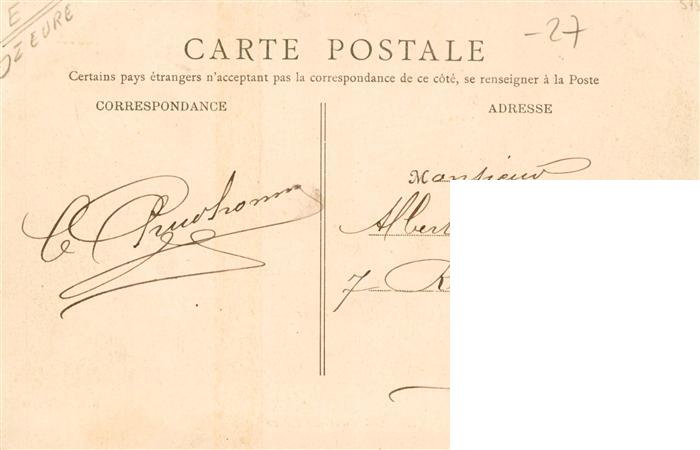 E
EURE
-27
CARTE POSTALE
Certains pays étrangers n'acceptant pas la correspondance de ce côté, se renseigner à la Poste
CORRESPONDANCE
ADRESSE
Monsieur
Albert
7